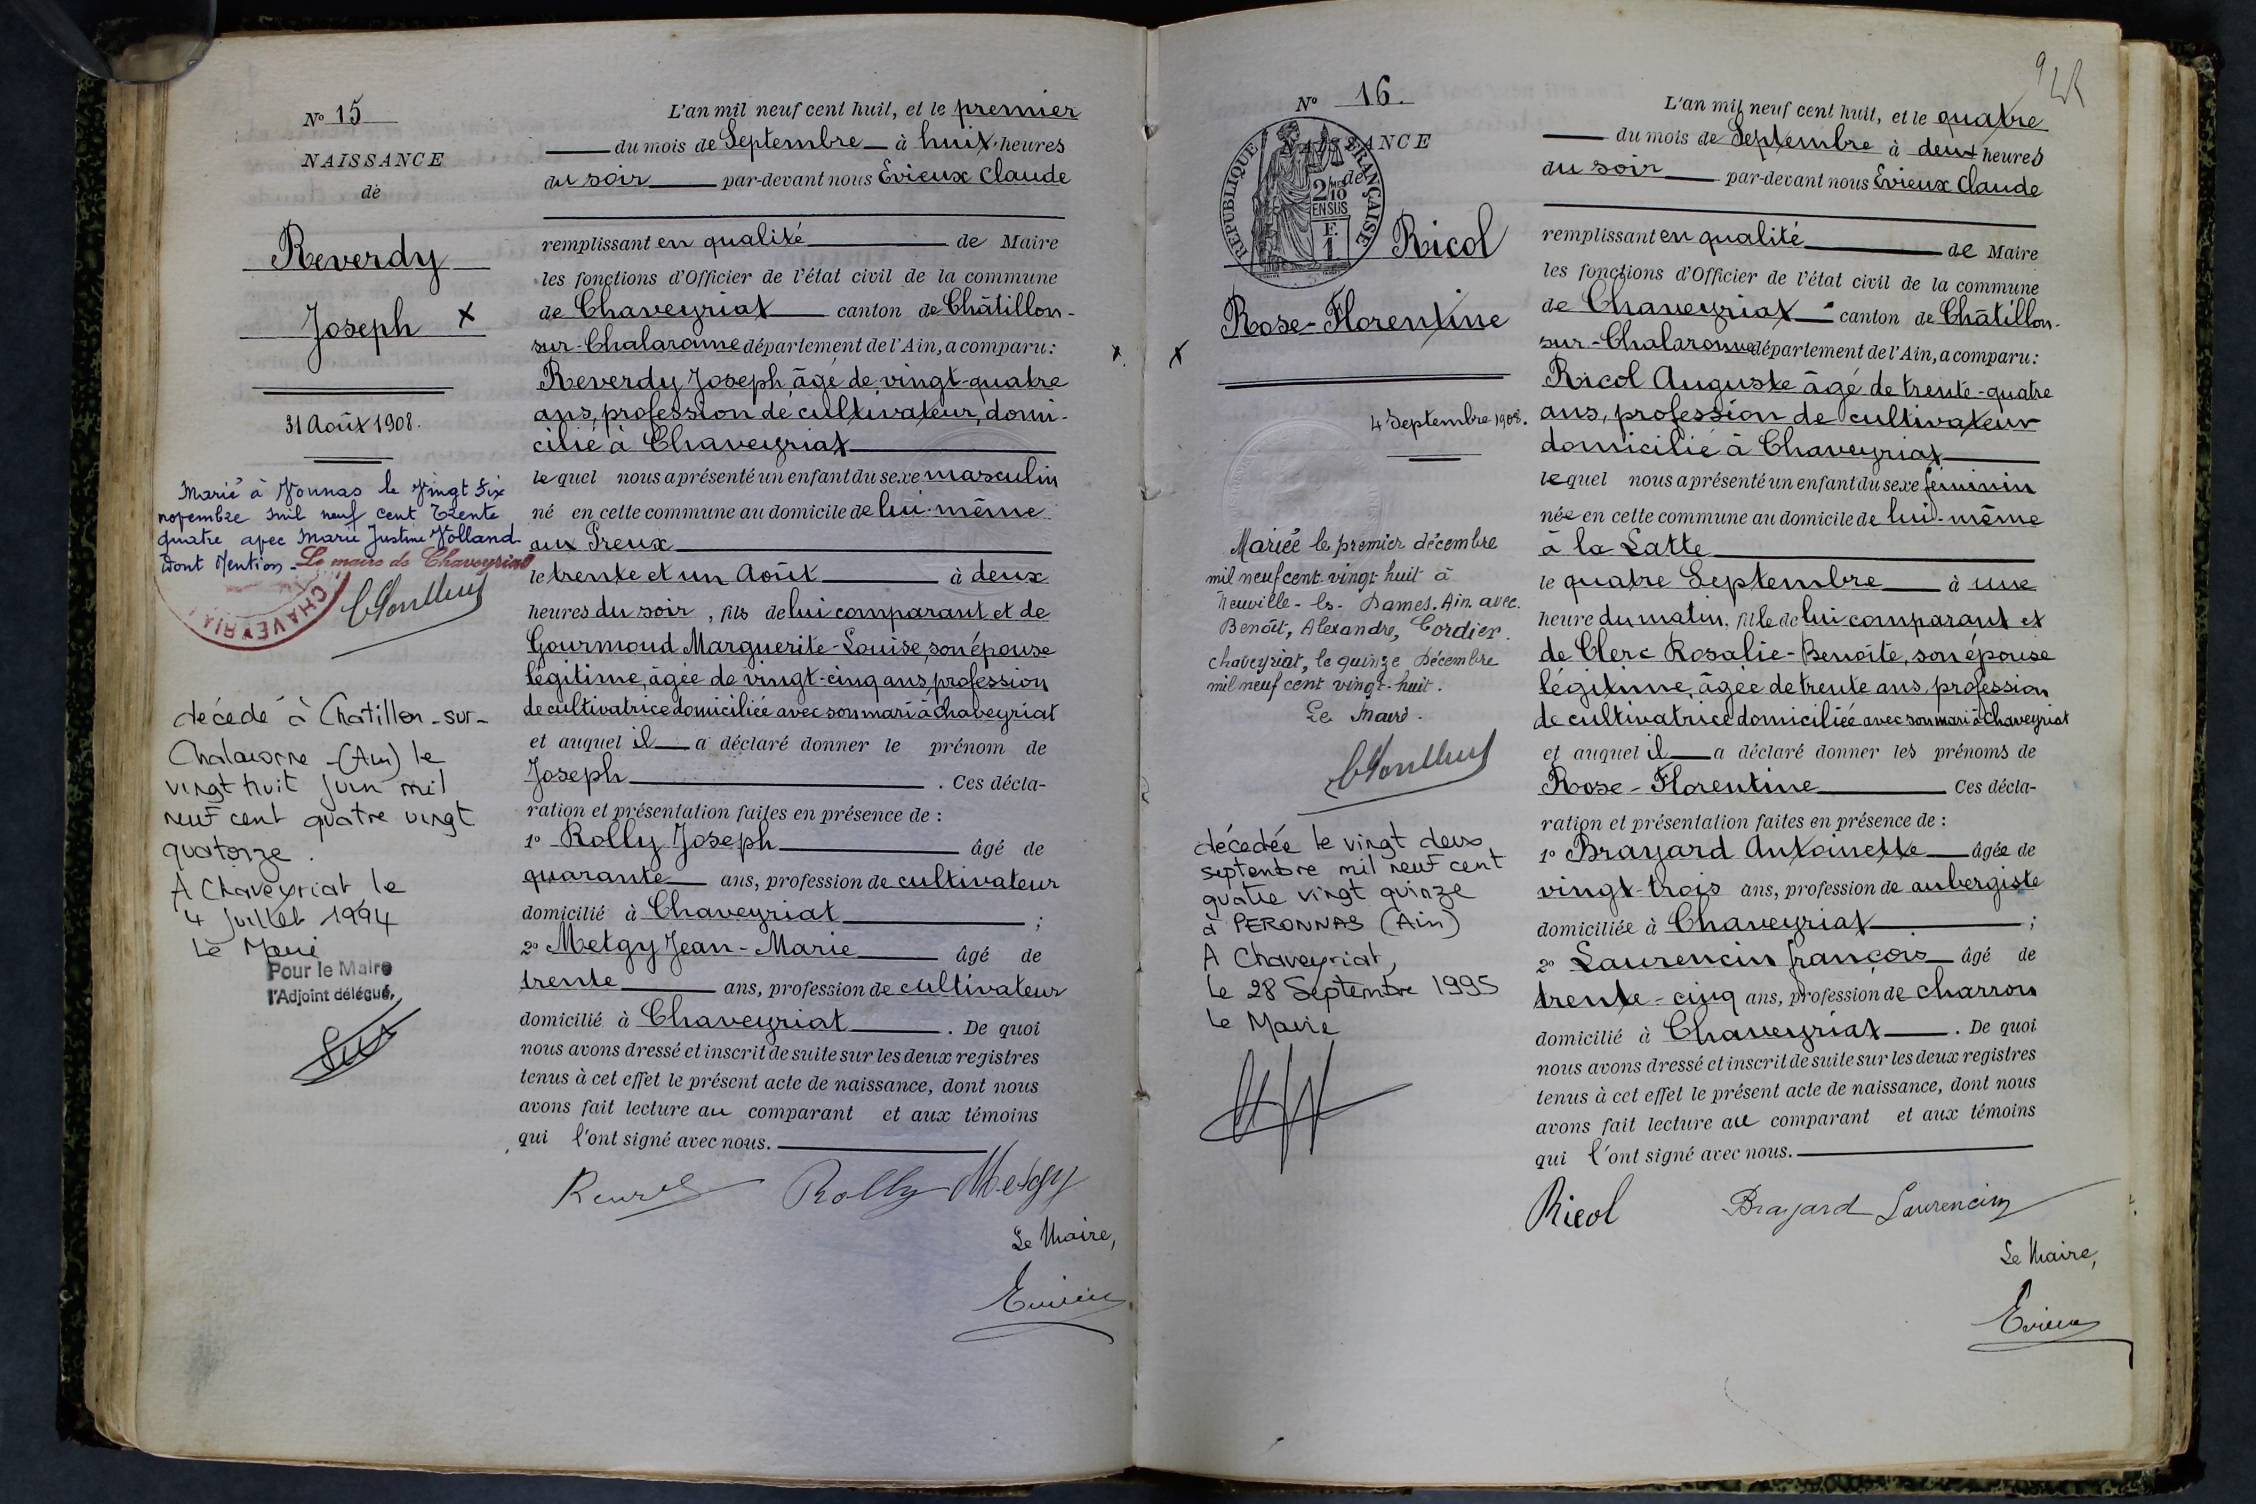 Nº 15
NAISSANCE
de
Reverdy
Joseph X
31 Août 1908.
Marié à Vonnas le vingt six
novembre mil neuf cent trente
quatre avec Marie Justine Volland
Dont Mention - Le maire de Chaveyriat
CHAVEYRIA
décédé à Chatillon-sur-
Chalaronne (Ain) le
vingt huit Juin mil
neuf cent quatre vingt
quatorze.
A Chaveyriat le
4 Juillet 1994
Le Maire
Pour le Maire
l'Adjoint délégué,
L'an mil neuf cent huit, et le premier
du mois de Septembre à huit heures
du soir par-devant nous Evieux Claude
remplissant en qualité de Maire
les fonctions d'Officier de l'état civil de la commune
de Chaveyriat canton de Châtillon-
sur-Chalaronne département de l'Ain, a comparu:
Reverdy Joseph âgé de vingt-quatre
ans, profession de cultivateur, domi-
cilié à Chaveyriat
lequel nous a présenté un enfant du sexe masculin
né en cette commune au domicile de lui-même
aux Preux
le trente et un Août à deux
heures du soir, fils de lui comparant et de
Gourmoud Marguerite-Louise, son épouse
légitime, âgée de vingt-cinq ans, profession
de cultivatrice domiciliée avec son mari à Chaveyriat
et auquel il a déclaré donner le prénom de
Joseph . Ces décla-
ration et présentation faites en présence de :
1º Rolly Joseph âgé de
quarante ans, profession de cultivateur
domicilié à Chaveyriat ;
2º Metgy Jean-Marie âgé de
trente ans, profession de cultivateur
domicilié à Chaveyriat . De quoi
nous avons dressé et inscrit de suite sur les deux registres
tenus à cet effet le présent acte de naissance, dont nous
avons fait lecture au comparant et aux témoins
qui l'ont signé avec nous.
Rolly Metgy
Le Maire,
Evieux
Nº 16.
NAISSANCE
de
REPUBLIQUE FRANÇAISE
2/10
EN SUS
F.
1
Ricol
Rose-Florentine
X
4 Septembre 1908.
Mariée le premier décembre
mil neuf cent vingt huit à
Neuville-les-Dames. Ain avec
Benoît, Alexandre, Cordier.
Chaveyriat, le quinze Décembre
mil neuf cent vingt-huit.
Le Maire.
décédée le vingt deux
septembre mil neuf cent
quatre vingt quinze
à PERONNAS (Ain)
A Chaveyriat,
le 28 Septembre 1995
Le Maire
L'an mil neuf cent huit, et le quatre
du mois de Septembre à deux heures
du soir par-devant nous Evieux Claude
remplissant en qualité de Maire
les fonctions d'Officier de l'état civil de la commune
de Chaveyriat canton de Châtillon-
sur-Chalaronne département de l'Ain, a comparu:
Ricol Auguste âgé de trente-quatre
ans, profession de cultivateur
domicilié à Chaveyriat
lequel nous a présenté un enfant du sexe féminin
née en cette commune au domicile de lui-même
à la Latte
le quatre Septembre à une
heure du matin, fille de lui comparant et
de Clerc Rosalie-Benoîte, son épouse
légitime, âgée de trente ans, profession
de cultivatrice domiciliée avec son mari à Chaveyriat
et auquel il a déclaré donner les prénoms de
Rose-Florentine Ces décla-
ration et présentation faites en présence de :
1º Brayard Antoinette âgée de
vingt-trois ans, profession de aubergiste
domiciliée à Chaveyriat ;
2º Laurencin françois âgé de
trente-cinq ans, profession de charron
domicilié à Chaveyriat . De quoi
nous avons dressé et inscrit de suite sur les deux registres
tenus à cet effet le présent acte de naissance, dont nous
avons fait lecture au comparant et aux témoins
qui l'ont signé avec nous.
Ricol Brayard Laurencin
Le Maire,
Evieux